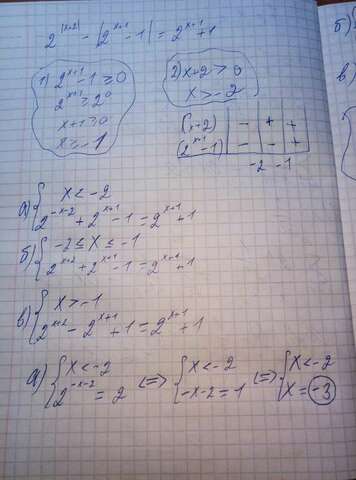 2^|x+2| - |2^(x+1) - 1| = 2^(x+1) + 1
1) 2^(x+1) - 1 ≥ 0
2^(x+1) ≥ 2^0
x+1 ≥ 0
x ≥ -1
2) x+2 > 0
x > -2
(x+2) | - | + | +
(2^(x+1) - 1) | - | - | +
-2 -1
а) { x < -2
2^(-x-2) + 2^(x+1) - 1 = 2^(x+1) + 1
б) { -2 ≤ x ≤ -1
2^(x+2) + 2^(x+1) - 1 = 2^(x+1) + 1
в) { x > -1
2^(x+2) - 2^(x+1) + 1 = 2^(x+1) + 1
а) { x < -2 <=> { x < -2 <=> { x < -2
2^(-x-2) = 2 -x-2 = 1 x = -3
б)
в)